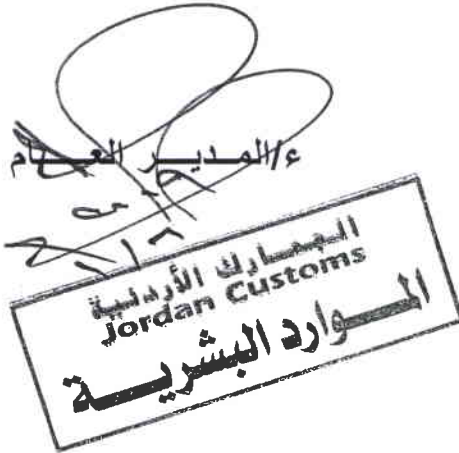 ء/المديـــر العـــام
الجمارك الأردنية
Jordan Customs
المـــوارد البشريـــة